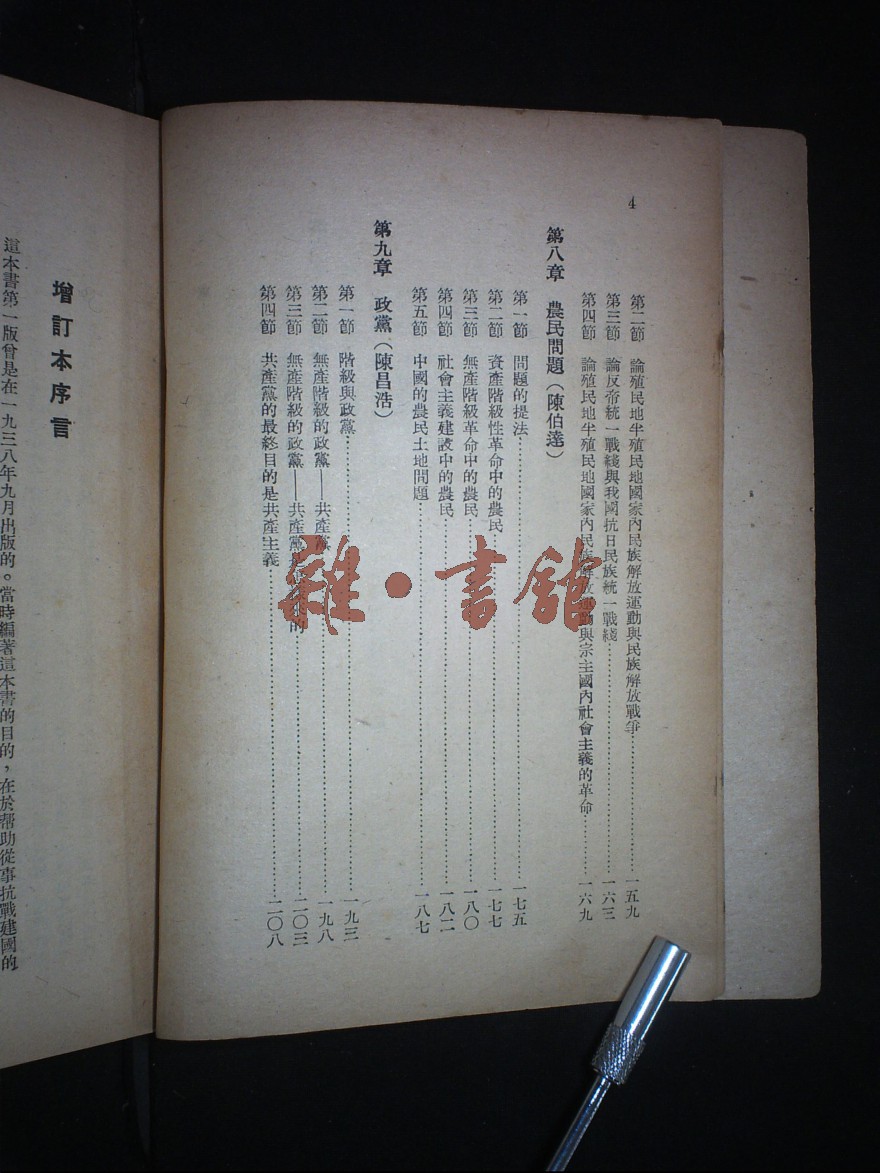 4
第二節　論殖民地半殖民地國家內民族解放運動與民族解放戰爭……一五九
第三節　論反帝統一戰綫與我國抗日民族統一戰綫……一六三
第四節　論殖民地半殖民地國家內民族解放運動與宗主國內社會主義的革命……一六九
第八章　農民問題（陳伯達）
第一節　問題的提法……一七五
第二節　資產階級性革命中的農民……一七七
第三節　無產階級革命中的農民……一八〇
第四節　社會主義建設中的農民……一八二
第五節　中國的農民土地問題……一八七
第九章　政黨（陳昌浩）
第一節　階級與政黨……一九三
第二節　無產階級的政黨——共產黨……一九八
第三節　無產階級的政黨——共產黨是　　的……二〇三
第四節　共產黨的最終目的是共產主義……二〇八
增訂本序言
這本書第一版曾是在一九三八年九月出版的。當時編著這本書的目的，在於幫助從事抗戰建國的
雜·書館